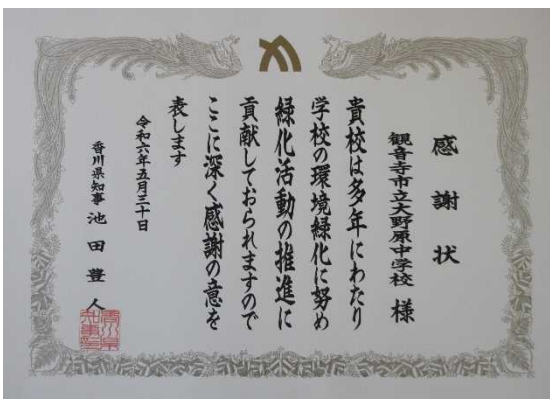 感謝状
観音寺市立大野原中学校 様
貴校は多年にわたり
学校の環境緑化に努め
緑化活動の推進に
貢献しておられますので
ここに深く感謝の意を
表します
令和六年五月三十日
香川県知事 池田豊人